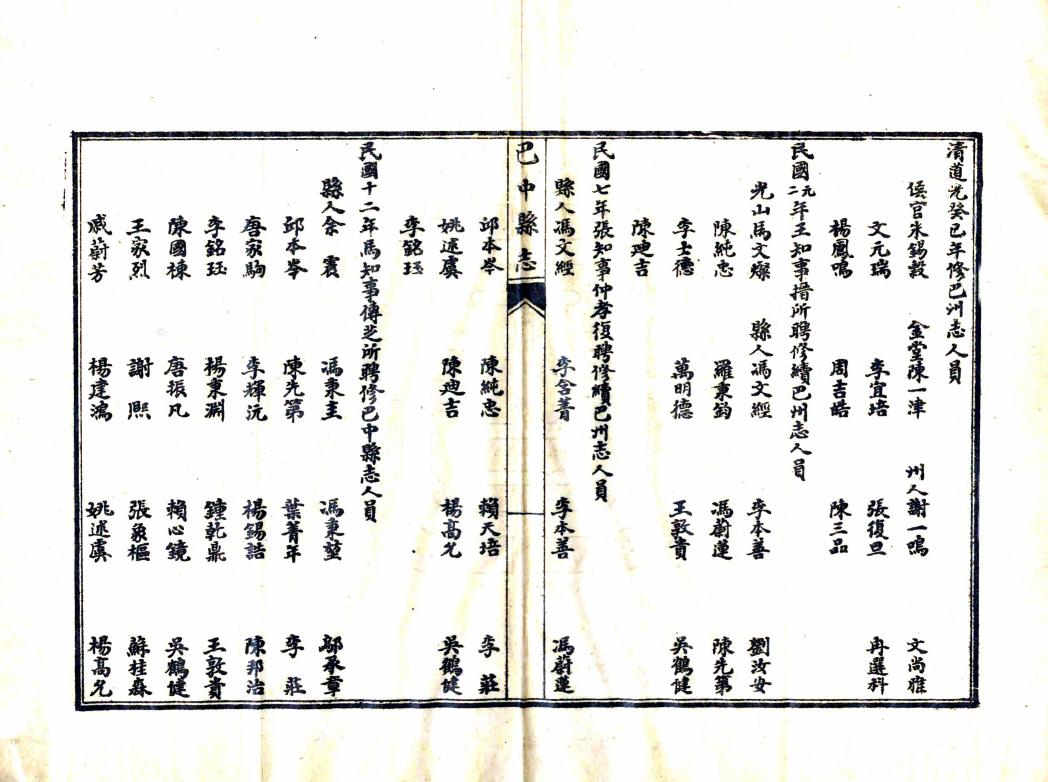 清道光癸巳年修巴州志人員
侯官朱錫穀 金堂陳一津 州人謝一鳴 文尚雅
文元瑞 李宜培 張復旦 冉選科
楊鳳鳴 周吉皓 陳三品
民國元二年王知事搢所聘修續巴州志人員
光山馬文燦 縣人馮文經 李本善 劉汝安
陳純忠 羅秉鈞 馮蔚蓮 陳先第
李士德 萬明德 王敦貴 吳鶴健
陳廸吉
民國七年張知事仲孝復聘修續巴州志人員
縣人馮文經 李含菁 李本善 馮蔚蓮
巴中縣志
邱本岑 陳純忠 賴天培 李莊
姚述虞 陳廸吉 楊高允 吳鶴健
李銘珏
民國十二年馬知事傳芝所聘修巴中縣志人員
縣人余震 馮秉圭 馮秉堃 鄔承章
邱本岑 陳先第 葉菁年 李莊
唐家駒 李輝沅 楊錫誥 陳邦治
李銘珏 楊秉淵 鍾乾鼎 王敦貴
陳國棟 唐振凡 賴心鏡 吳鶴健
王家烈 謝熙 張象樞 蘇桂森
戚蔚芳 楊建鴻 姚述虞 楊高允